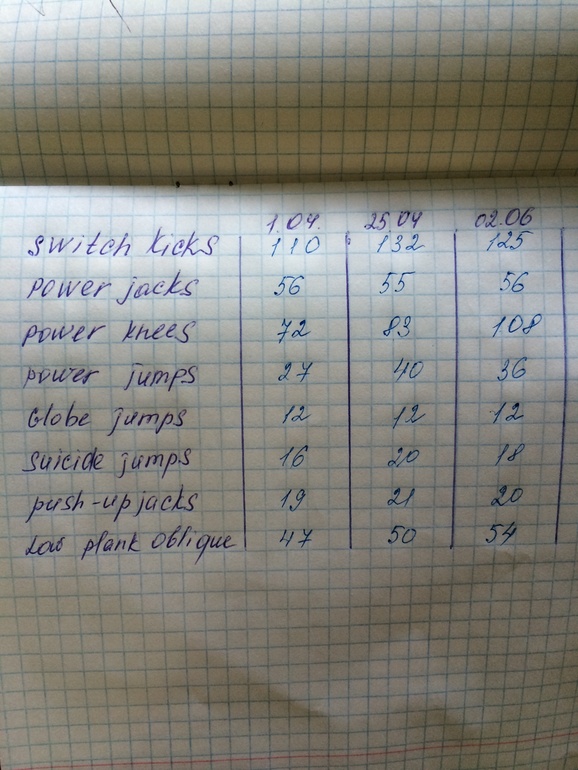 1.04. 25.04 02.06
Switch kicks 110 132 125
Power jacks 56 55 56
Power knees 72 83 108
Power jumps 27 40 36
Globe jumps 12 12 12
Suicide jumps 16 20 18
push-up jacks 19 21 20
Low plank oblique 47 50 54